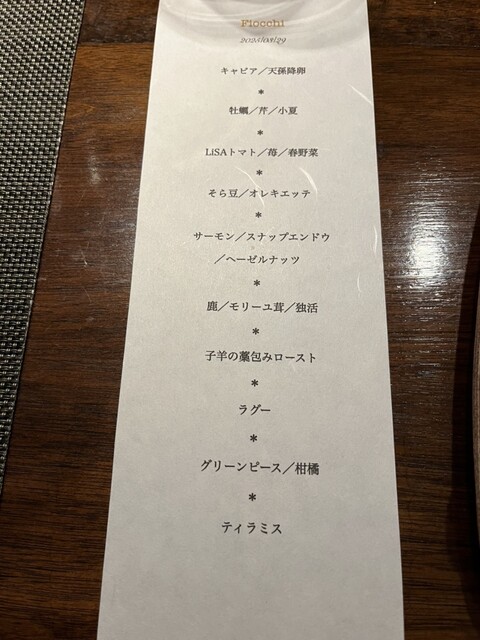 Fiocchi
2025/03/29
キャビア／天孫降卵
*
牡蠣／芹／小夏
*
LiSAトマト／苺／春野菜
*
そら豆／オレキエッテ
*
サーモン／スナップエンドウ
／ヘーゼルナッツ
*
鹿／モリーユ茸／独活
*
子羊の藁包みロースト
*
ラグー
*
グリーンピース／柑橘
*
ティラミス